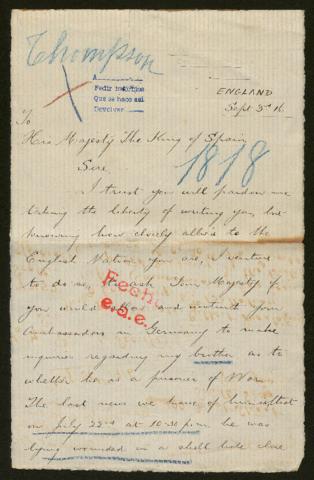 Thompson
A
Pedir informes
Que se hace así
Devolver
ENGLAND
Sept 3rd 16
To
His Majesty The King of Spain
Sire,
1818
I trust you will pardon me
taking the liberty of writing you, but
knowing how closely allied to the
English Nation you are, I venture
to do so, to ask Your Majesty if
you would and instruct your
Ambassadors in Germany to make
inquiries regarding my brother as to
whether he is a prisoner of War.
The last news we have of him is that
on July 22nd at 10-30 p.m. he was
lying wounded in a shell hole close